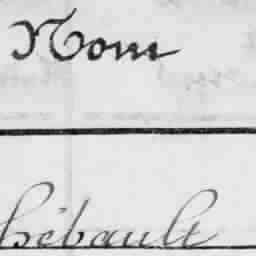 Nom
hébault